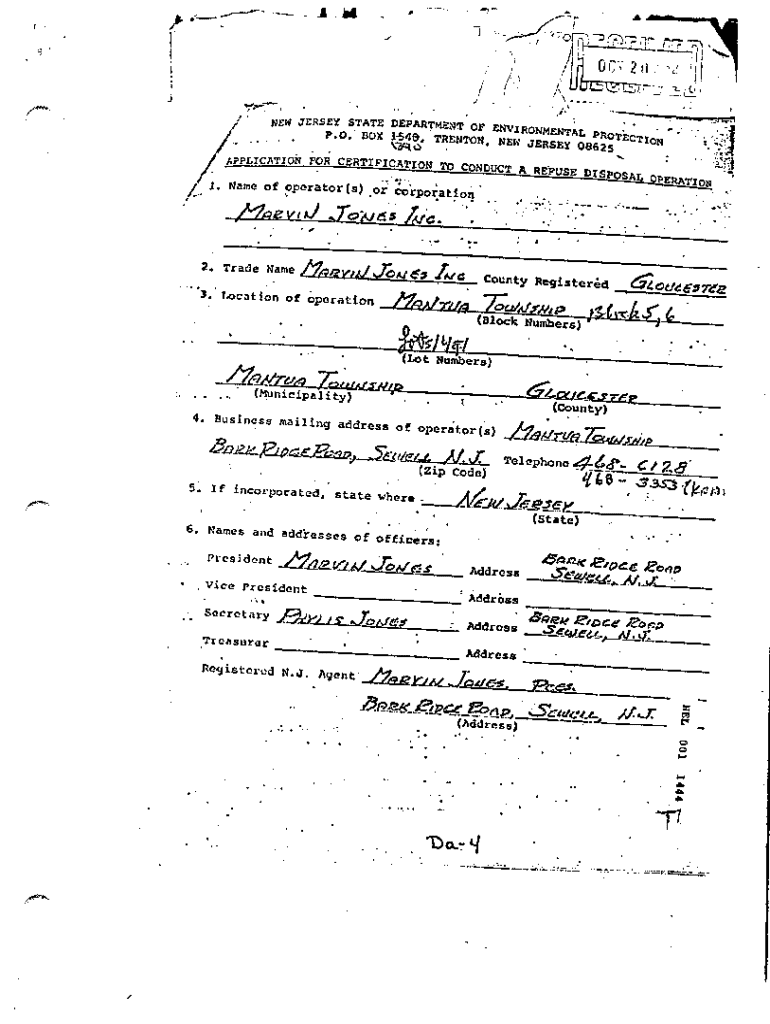 OCT 20
NEW JERSEY STATE DEPARTMENT OF ENVIRONMENTAL PROTECTION
P.O. BOX 1540, TRENTON, NEW JERSEY 08625
1390
APPLICATION FOR CERTIFICATION TO CONDUCT A REFUSE DISPOSAL OPERATION
1. Name of operator(s) or corporation
MARVIN JONES INC.
2. Trade Name MARVIN JONES INC County Registered GLOUCESTER
3. Location of operation MANTUA TOWNSHIP Block 5, 6
(Block Numbers)
(Lot Numbers)
MANTUA TOWNSHIP GLOUCESTER
(Municipality) (County)
4. Business mailing address of operator(s) MANTUA TOWNSHIP
BARK RIDGE ROAD, SEWELL N.J. Telephone 468-6128
(Zip Code) 468-3353
5. If incorporated, state where NEW JERSEY
(State)
6. Names and addresses of officers:
President MARVIN JONES Address BARK RIDGE ROAD
SEWELL, N.J.
Vice President Address
Secretary PHYLIS JONES Address BARK RIDGE ROAD
SEWELL, N.J.
Treasurer Address
Registered N.J. Agent MARVIN JONES, PRES.
BARK RIDGE ROAD, SEWELL, N.J.
(Address)
HEL 001 1444
Da-4